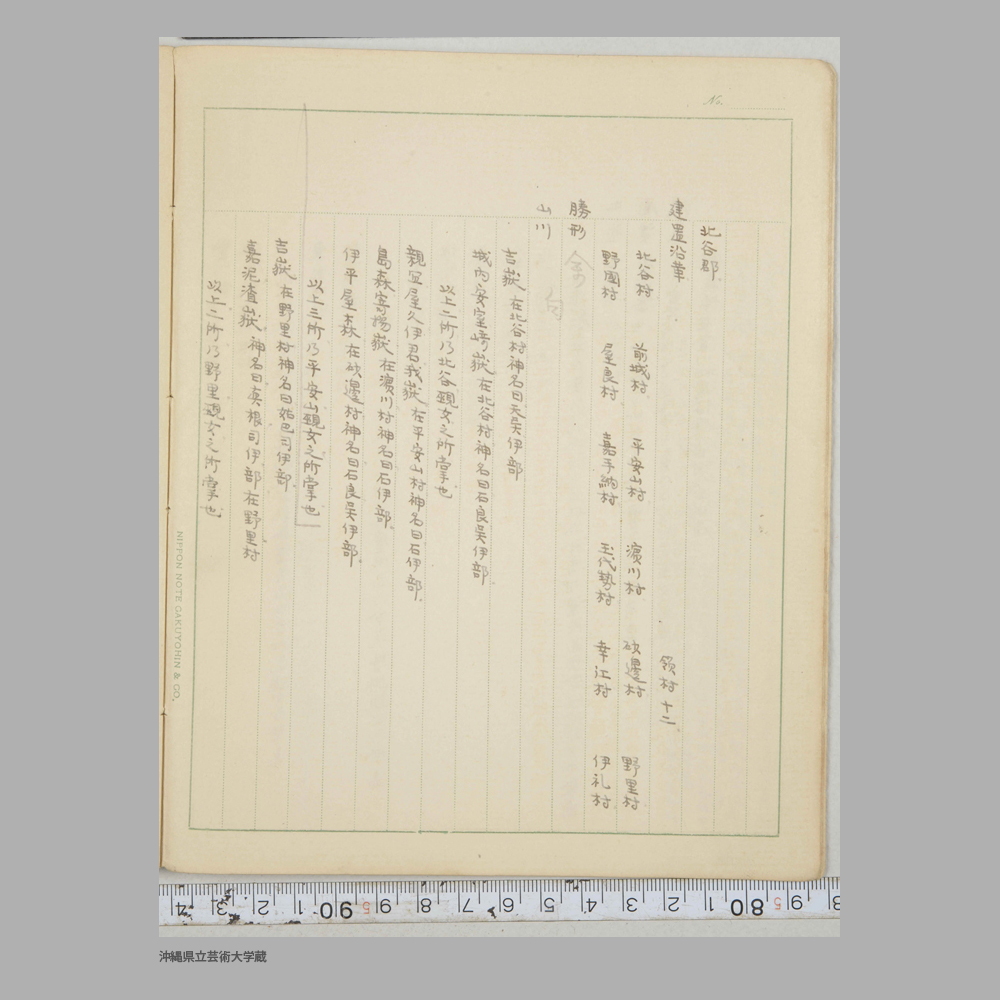 No.
北谷郡
建置沿革
領村十二
北谷村 前城村 平安山村 濱川村 砂邊村 野里村
野國村 屋良村 嘉手納村 玉代勢村 幸江村 伊礼村
勝形
山川
吉嶽 在北谷村神名曰天吴伊部
城内安室崎嶽 在北谷村神名曰石良吴伊部
以上二所乃北谷覡女之所掌也
親冝屋久伊君我嶽 在平安山村神名曰石伊部
島森寄揚嶽 在濱川村神名曰石伊部
伊平屋森 在砂邊村神名曰石良吴伊部
以上三所乃平安山覡女之所掌也
吉嶽 在野里村神名曰始巴司伊部
嘉泥渣山嶽 神名曰真根司伊部在野里村
以上二所乃野里覡女之所掌也
NIPPON NOTE GAKUYOHIN & CO.
沖縄県立芸術大学蔵